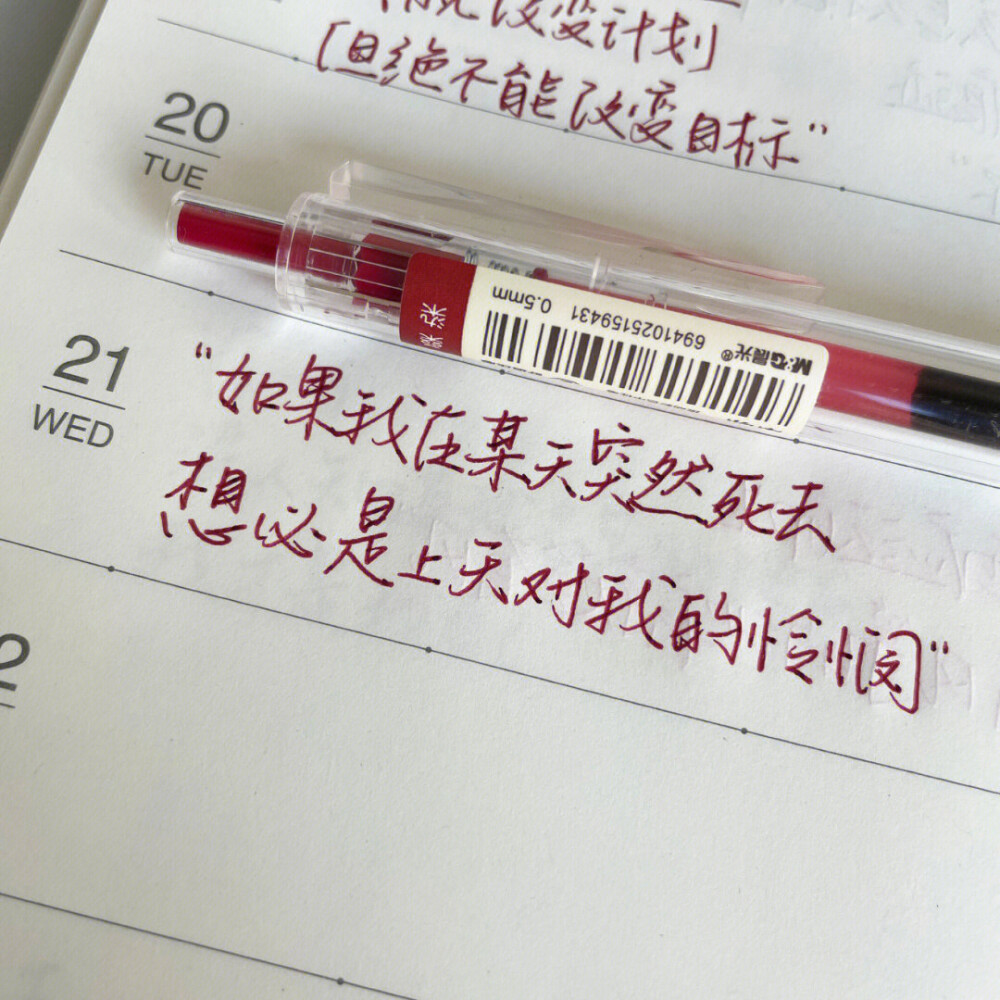 改变计划
但绝不能改变目标”
20
TUE
M&G晨光®
6941025159431 0.5mm
21
WED
“如果我在某天突然死去
想必是上天对我的怜悯”
2